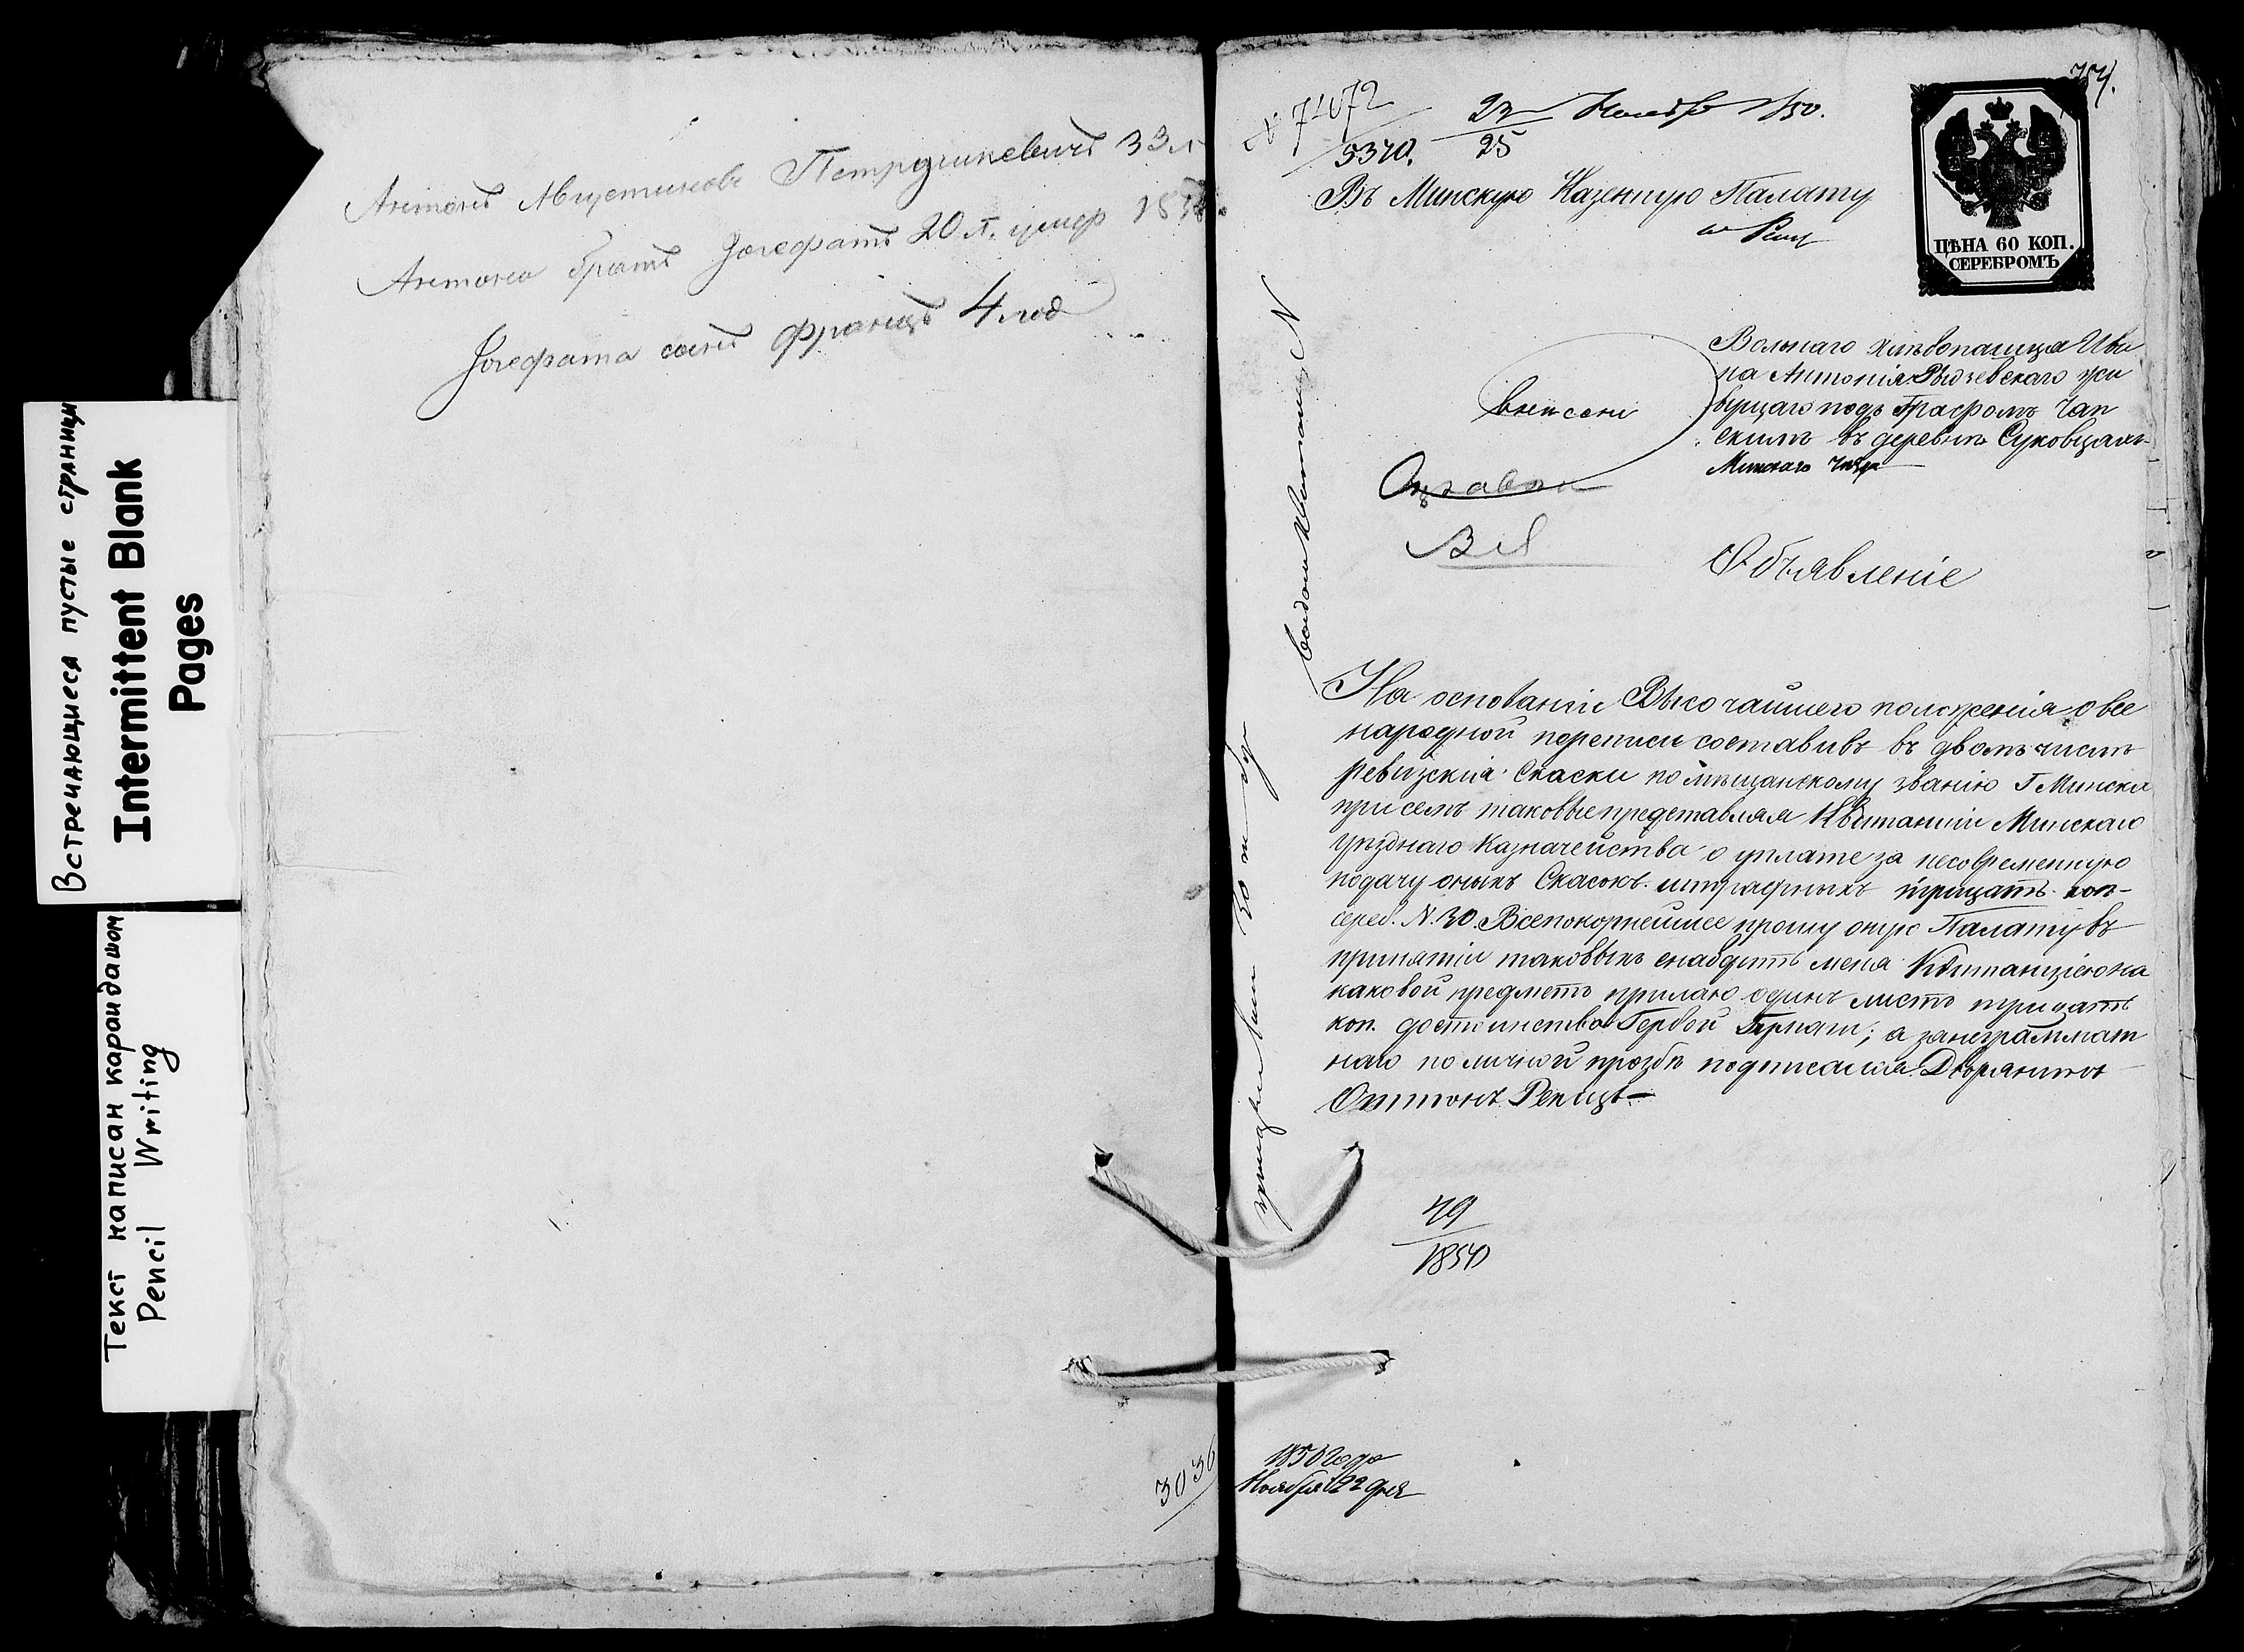 Встречающиеся пустые страницы
Intermittent Blank
Pages
Текст написан карандашом
Pencil Writing
Антонъ Августиновъ Петрушкевичъ 33 л
Антона братъ Іозефатъ 20 л. умер
Іозефата сынъ Францъ 4 год
3036
№ 71072
5370.
23 Ноября 1850.
25
Въ Минскую Казенную Палату
ЦѢНА 60 КОП.
СЕРЕБРОМЪ
Вольнаго хлѣбопашца Ива
на Антонія жи
вущаго подъ Графомъ Чап
скимъ въ деревнѣ Суковщизнѣ
Минскаго
внисени
Объявленіе
На основаніи Высочайшего положенія о все
народной переписи составивъ въ двомъ числѣ
ревизскія Скаски по мѣщанскому званію Г Минска
при семъ таковые представляя Квитанціи Минскаго
уѣзднаго Казначейства о уплате за несовременную
подачу оныхъ Скасокъ штрафныхъ трицать коп-
сереб. N. 30. Всепокорнейшее прошу оную Палату въ
принятіи таковыхъ снабдить меня Квитанціею на
каковой предметъ прилаю одинъ листъ трицать
коп. достоинства Гербой Бумаги; а занеграммат
наго по личной прозбѣ подписался Дворянинъ
49
1850
1850 года
Ноября 22 дня